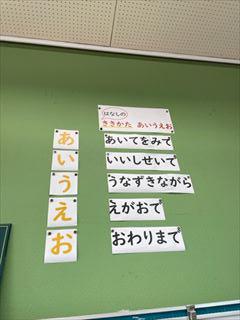 はなしの
ききかた あいうえお
あ あいてをみて
い いいしせいで
う うなずきながら
え えがおで
お おわりまで